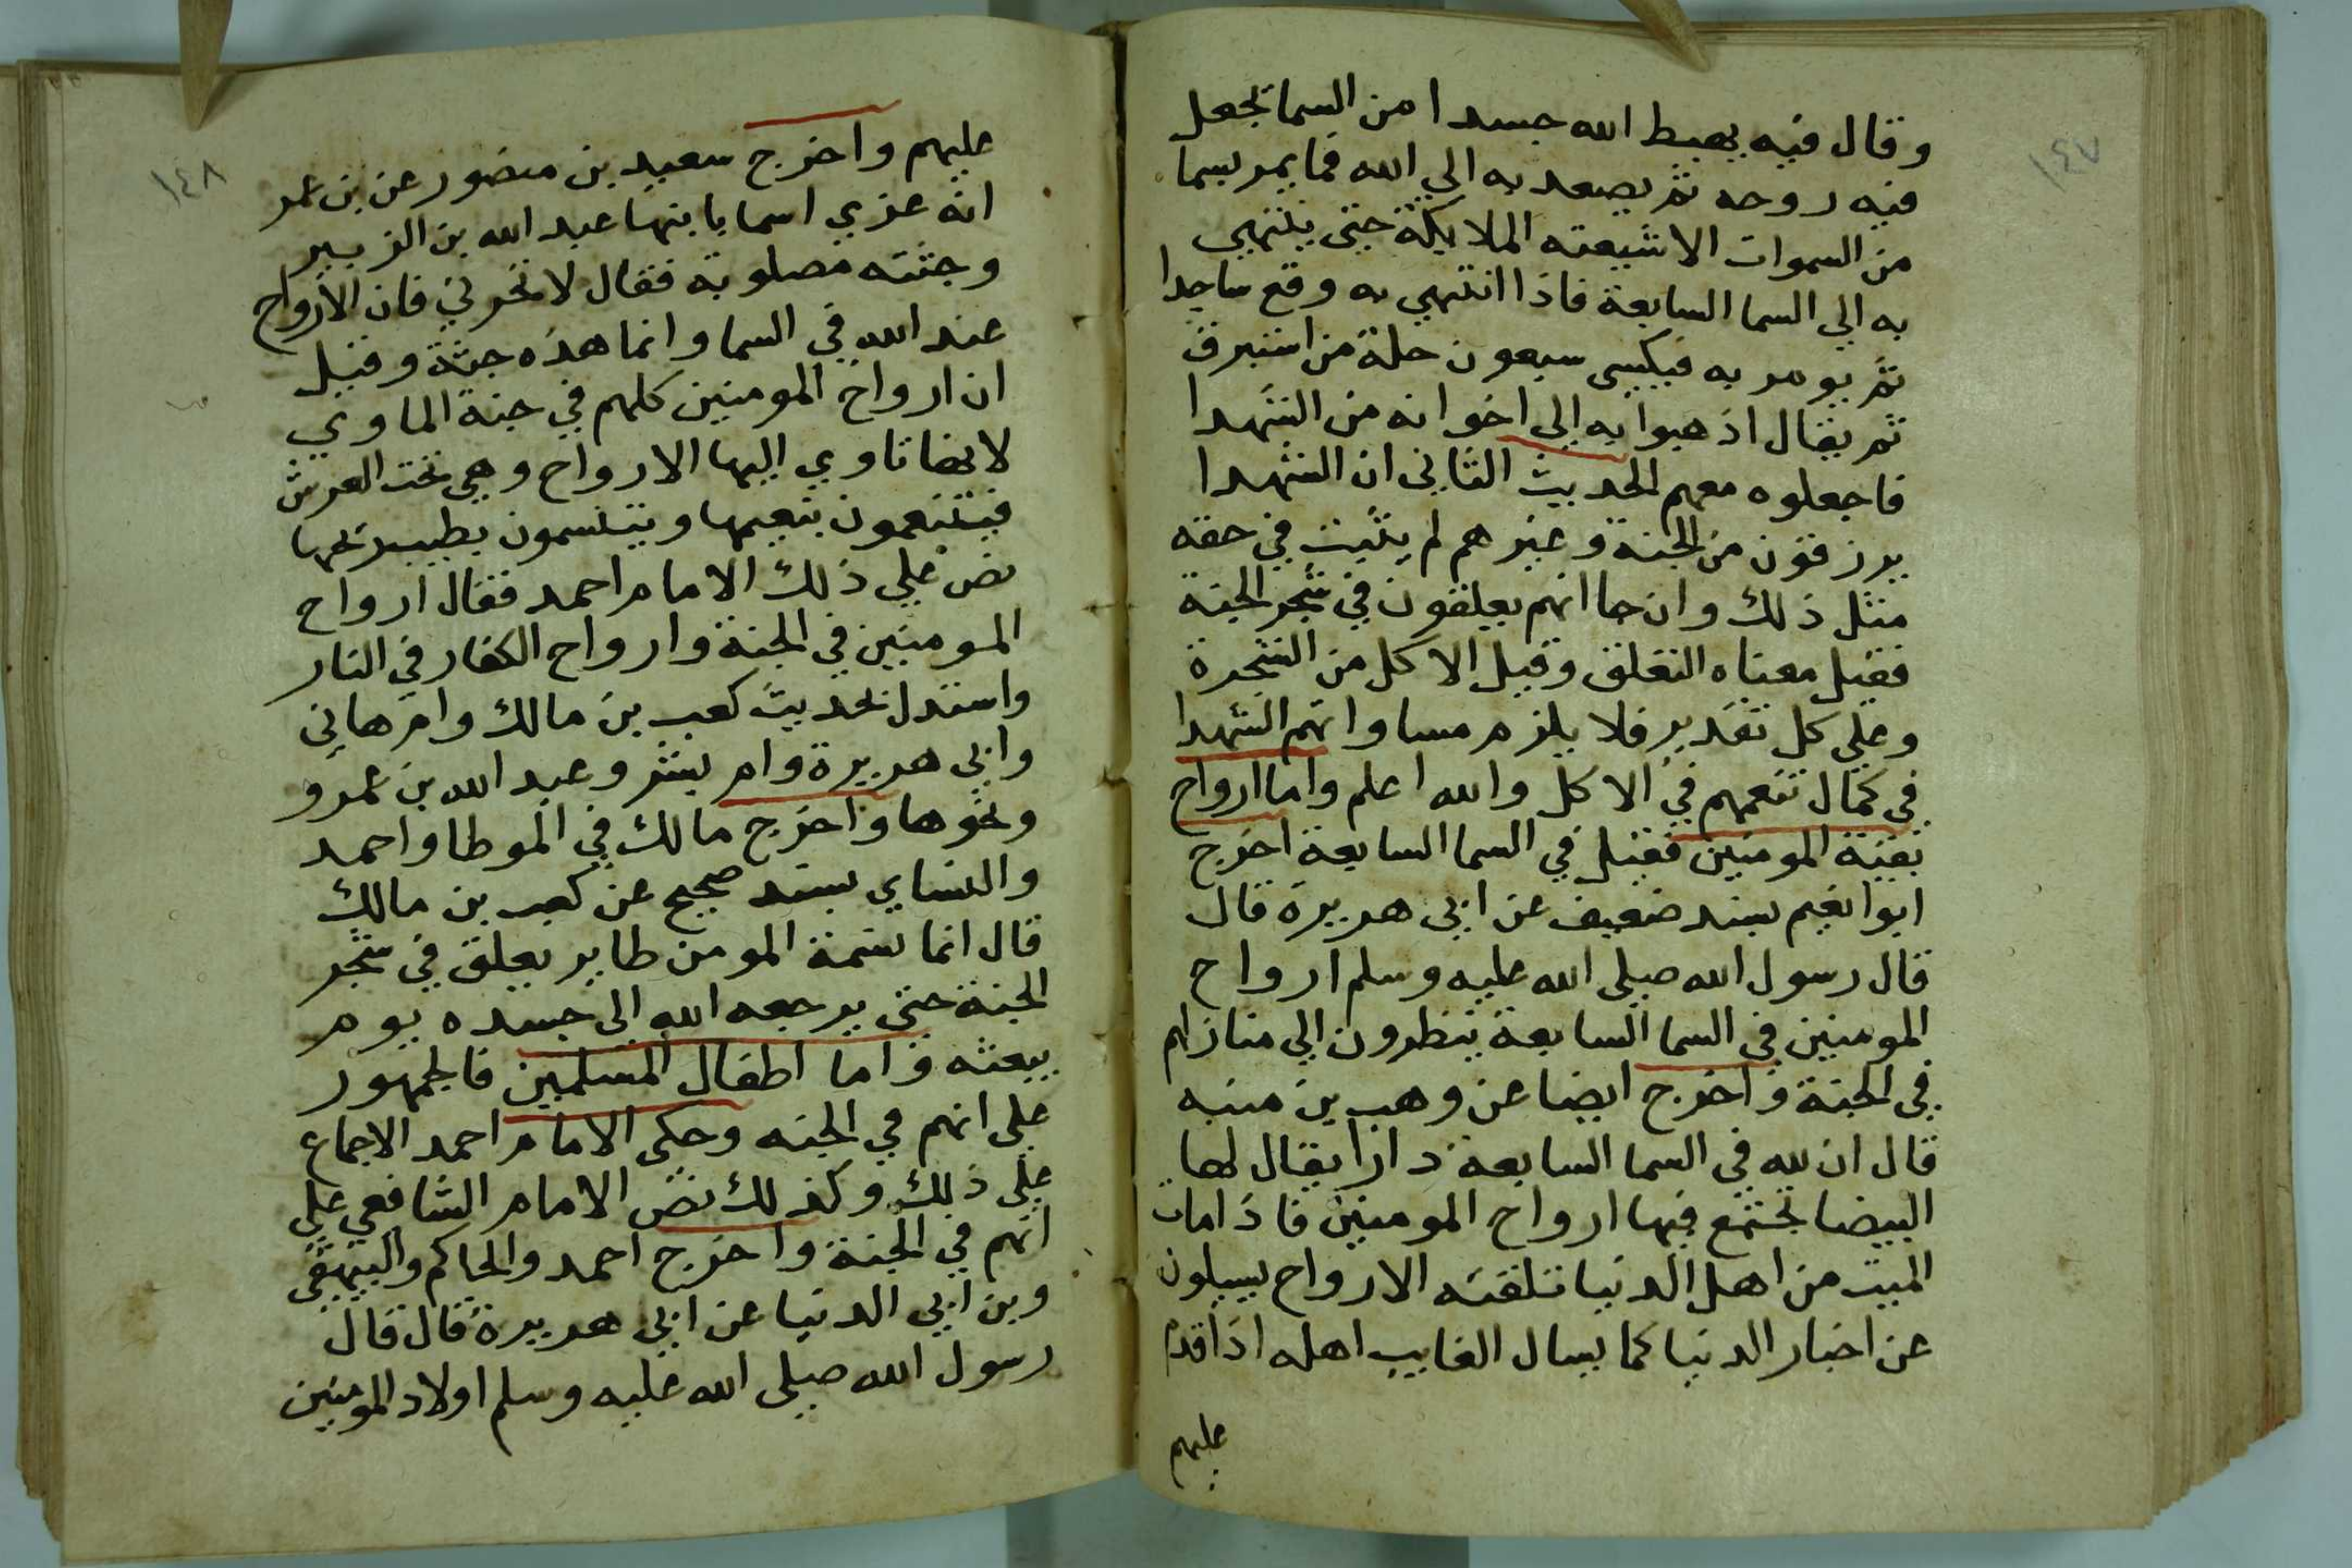 ١٤٧
وقال فيه يهبط الله جسدا من السما تجعل
فيه روحه ثم يصعد به الي الله فما يمر بسما
من السموات الا شيعته الملايكة حتى ينتهي
به الي السما السابعة فاذا انتهي به وقع ساجدا
ثم يومر به فيكسى سبعون حلة من استبرق
ثم يقال اذهبوا به الى اخوانه من الشهدا
فاجعلوه معهم الحديث الثاني ان الشهدا
يرزقون من الجنة وغيرهم لم يثبت في حقه
مثل ذلك وان جا انهم يعلقون في شجر الجنة
فقيل معناه التعلق وقيل الاكل من الشجرة
وعلي كل تقدير فلا يلزم مساواتهم الشهدا
في كمال تنعمهم في الاكل والله اعلم واما ارواح
بقية المومنين فقيل في السما السابعة اخرج
ابوا نعيم بسند ضعيف عن ابي هريرة قال
قال رسول الله صلى الله عليه وسلم ارواح
المومنين في السما السابعة ينظرون الي منازلهم
في الجنة واخرج ايضا عن وهب بن منبه
قال ان لله في السما السابعة دارا يقال لها
البيضا تجتمع فيها ارواح المومنين فاذا مات
الميت من اهل الدنيا تلقته الارواح يسيلون
عن اخبار الدنيا كما يسال الغايب اهله اذا قدم
عليهم
١٤٨
عليهم واخرج سعيد بن منصور عن بن عمر
انه عزي اسما بابنها عبد الله بن الزبير
وجثته مصلوبة فقال لا تحزني فان الارواح
عند الله في السما وانما هذه جثة وقيل
ان ارواح المومنين كلهم في جنة الماوي
لانها تاوي اليها الارواح وهي تحت العرش
فيتنعمون بنعيمها ويتنسمون بطيب ريحها
نص علي ذلك الامام احمد فقال ارواح
المومنين في الجنة وارواح الكفار في النار
واستدل بحديث كعب بن مالك وام هاني
وابي هريرة وام بشر وعبد الله بن عمرو
ونحوها واخرج مالك في الموطا واحمد
والنساي بسند صحيح عن كعب بن مالك
قال انما نسمة المومن طاير يعلق في شجر
الجنة حتى يرجعه الله الى جسده يوم
يبعثه واما اطفال المسلمين فالجمهور
على انهم في الجنه وحكى الامام احمد الاجماع
على ذلك وكذلك نص الامام الشافعي علي
انهم في الجنة واخرج احمد والحاكم والبيهقي
وبن ابي الدنيا عن ابي هريرة قال قال
رسول الله صلى الله عليه وسلم اولاد المومنين